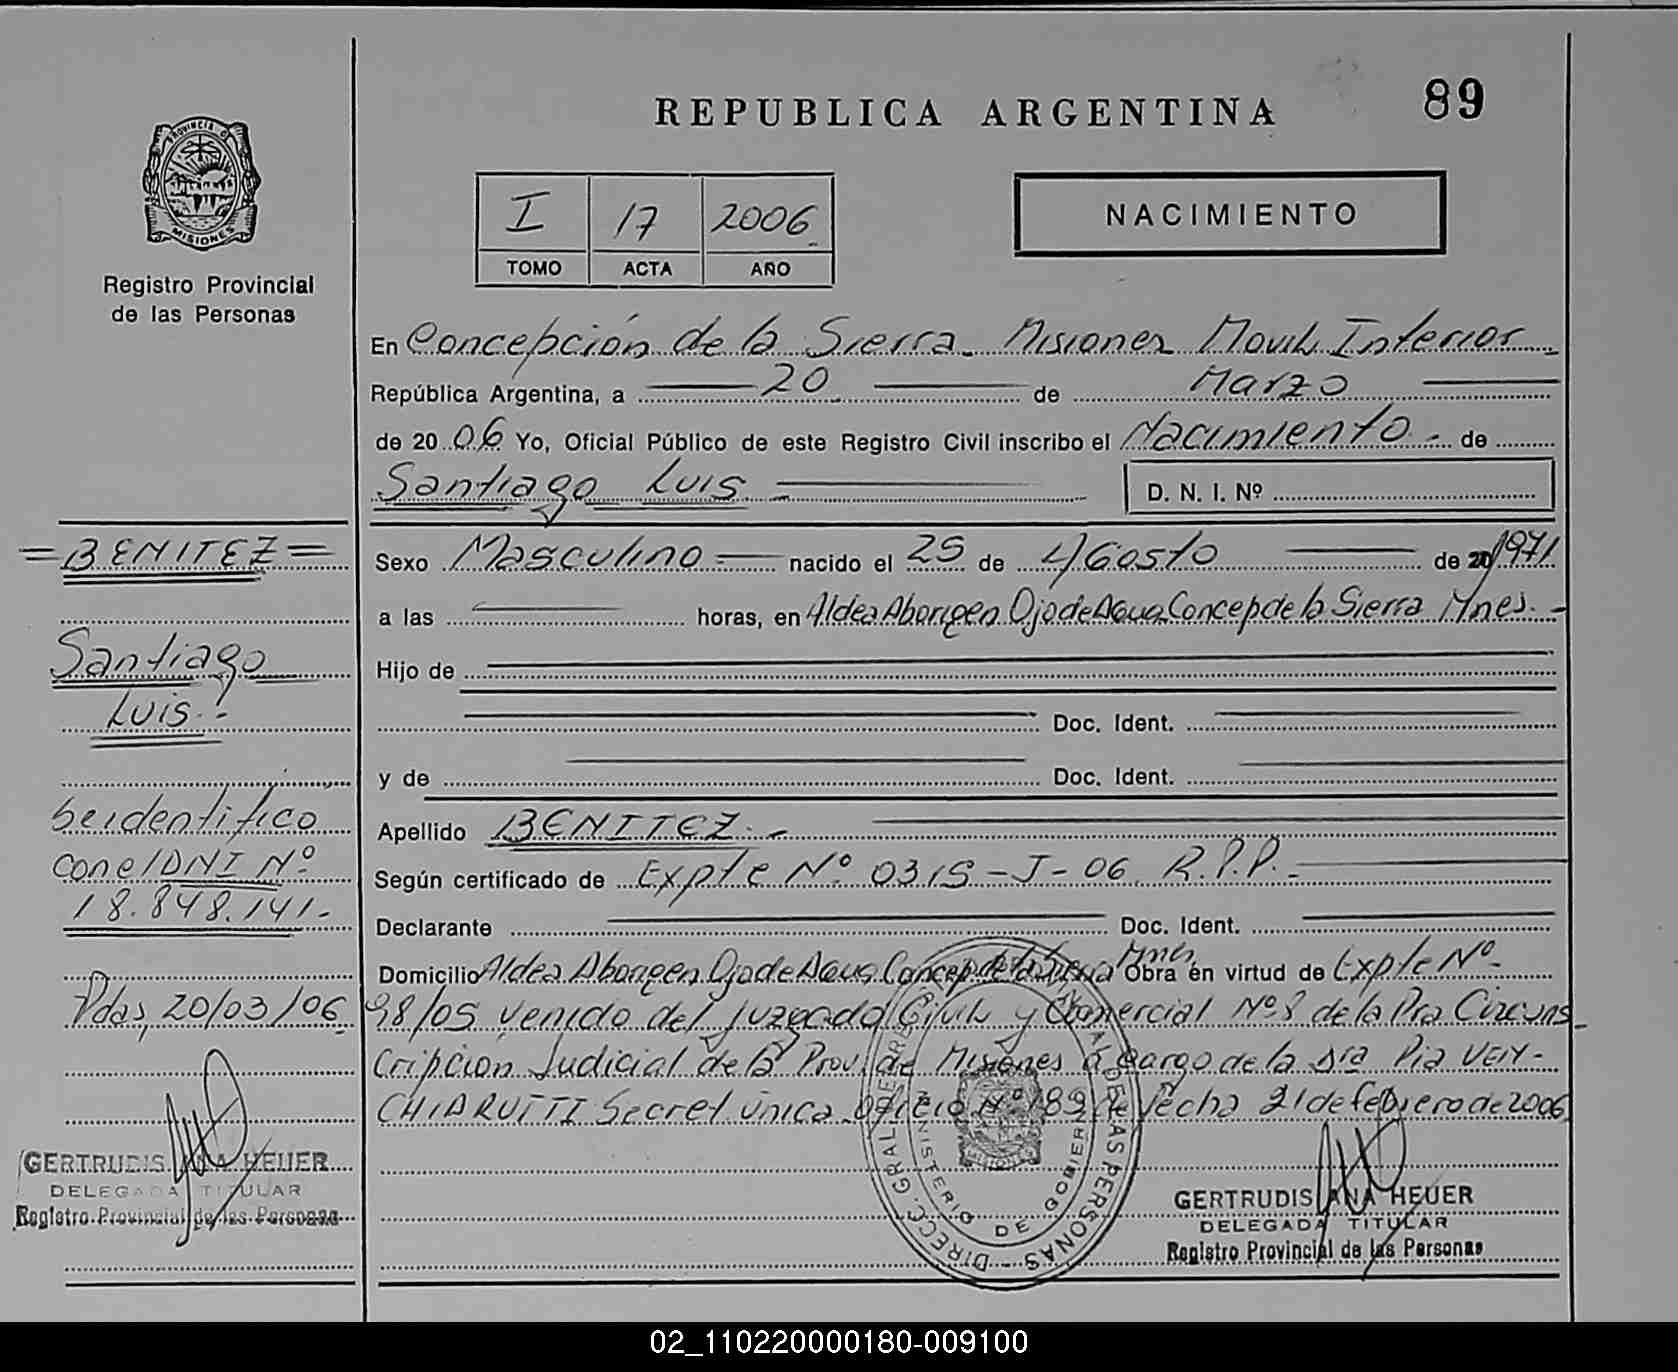 REPUBLICA ARGENTINA
89
PROVINCIA DE
MISIONES
Registro Provincial
de las Personas
I 17 2006
TOMO ACTA AÑO
NACIMIENTO
En Concepción de la Sierra Misiones Movil Interior
República Argentina, a 20 de Marzo
de 20 06 Yo, Oficial Público de este Registro Civil inscribo el Nacimiento de
Santiago Luis D. N. I. Nº
Sexo Masculino nacido el 25 de Agosto de 20 1971
a las horas, en Aldea Aborigen Ojo de Agua Concep de la Sierra Mnes.
Hijo de
Doc. Ident.
y de Doc. Ident.
Apellido BENITEZ.-
Según certificado de Expte Nº 0315-J-06 R.P.P.-
Declarante Doc. Ident.
Domicilio Aldea Aborigen Ojo de Agua Concep de la Sierra Mnes Obra en virtud de Expte Nº
98/05 venido del Juzgado Civil y Comercial Nº 8 de la Pra Circuns
cripcion Judicial de la Prov. de Misiones a Cargo de la Dra Pia VEN-
CHIARUTTI Secret única Oficio Nº 89 de fecha 21 de febrero de 2006
=BENITEZ=
Santiago
Luis.-
Se identifico
con el DNI Nº
18.848.141.-
Pdas, 20/03/06
GERTRUDIS ANA HEUER
DELEGADA TITULAR
Registro Provincial de las Personas
DIRECC. GRAL. DE REGISTRO PROVINCIAL DE LAS PERSONAS
MINISTERIO DE GOBIERNO
MISIONES
GERTRUDIS ANA HEUER
DELEGADA TITULAR
Registro Provincial de las Personas
02_110220000180-009100